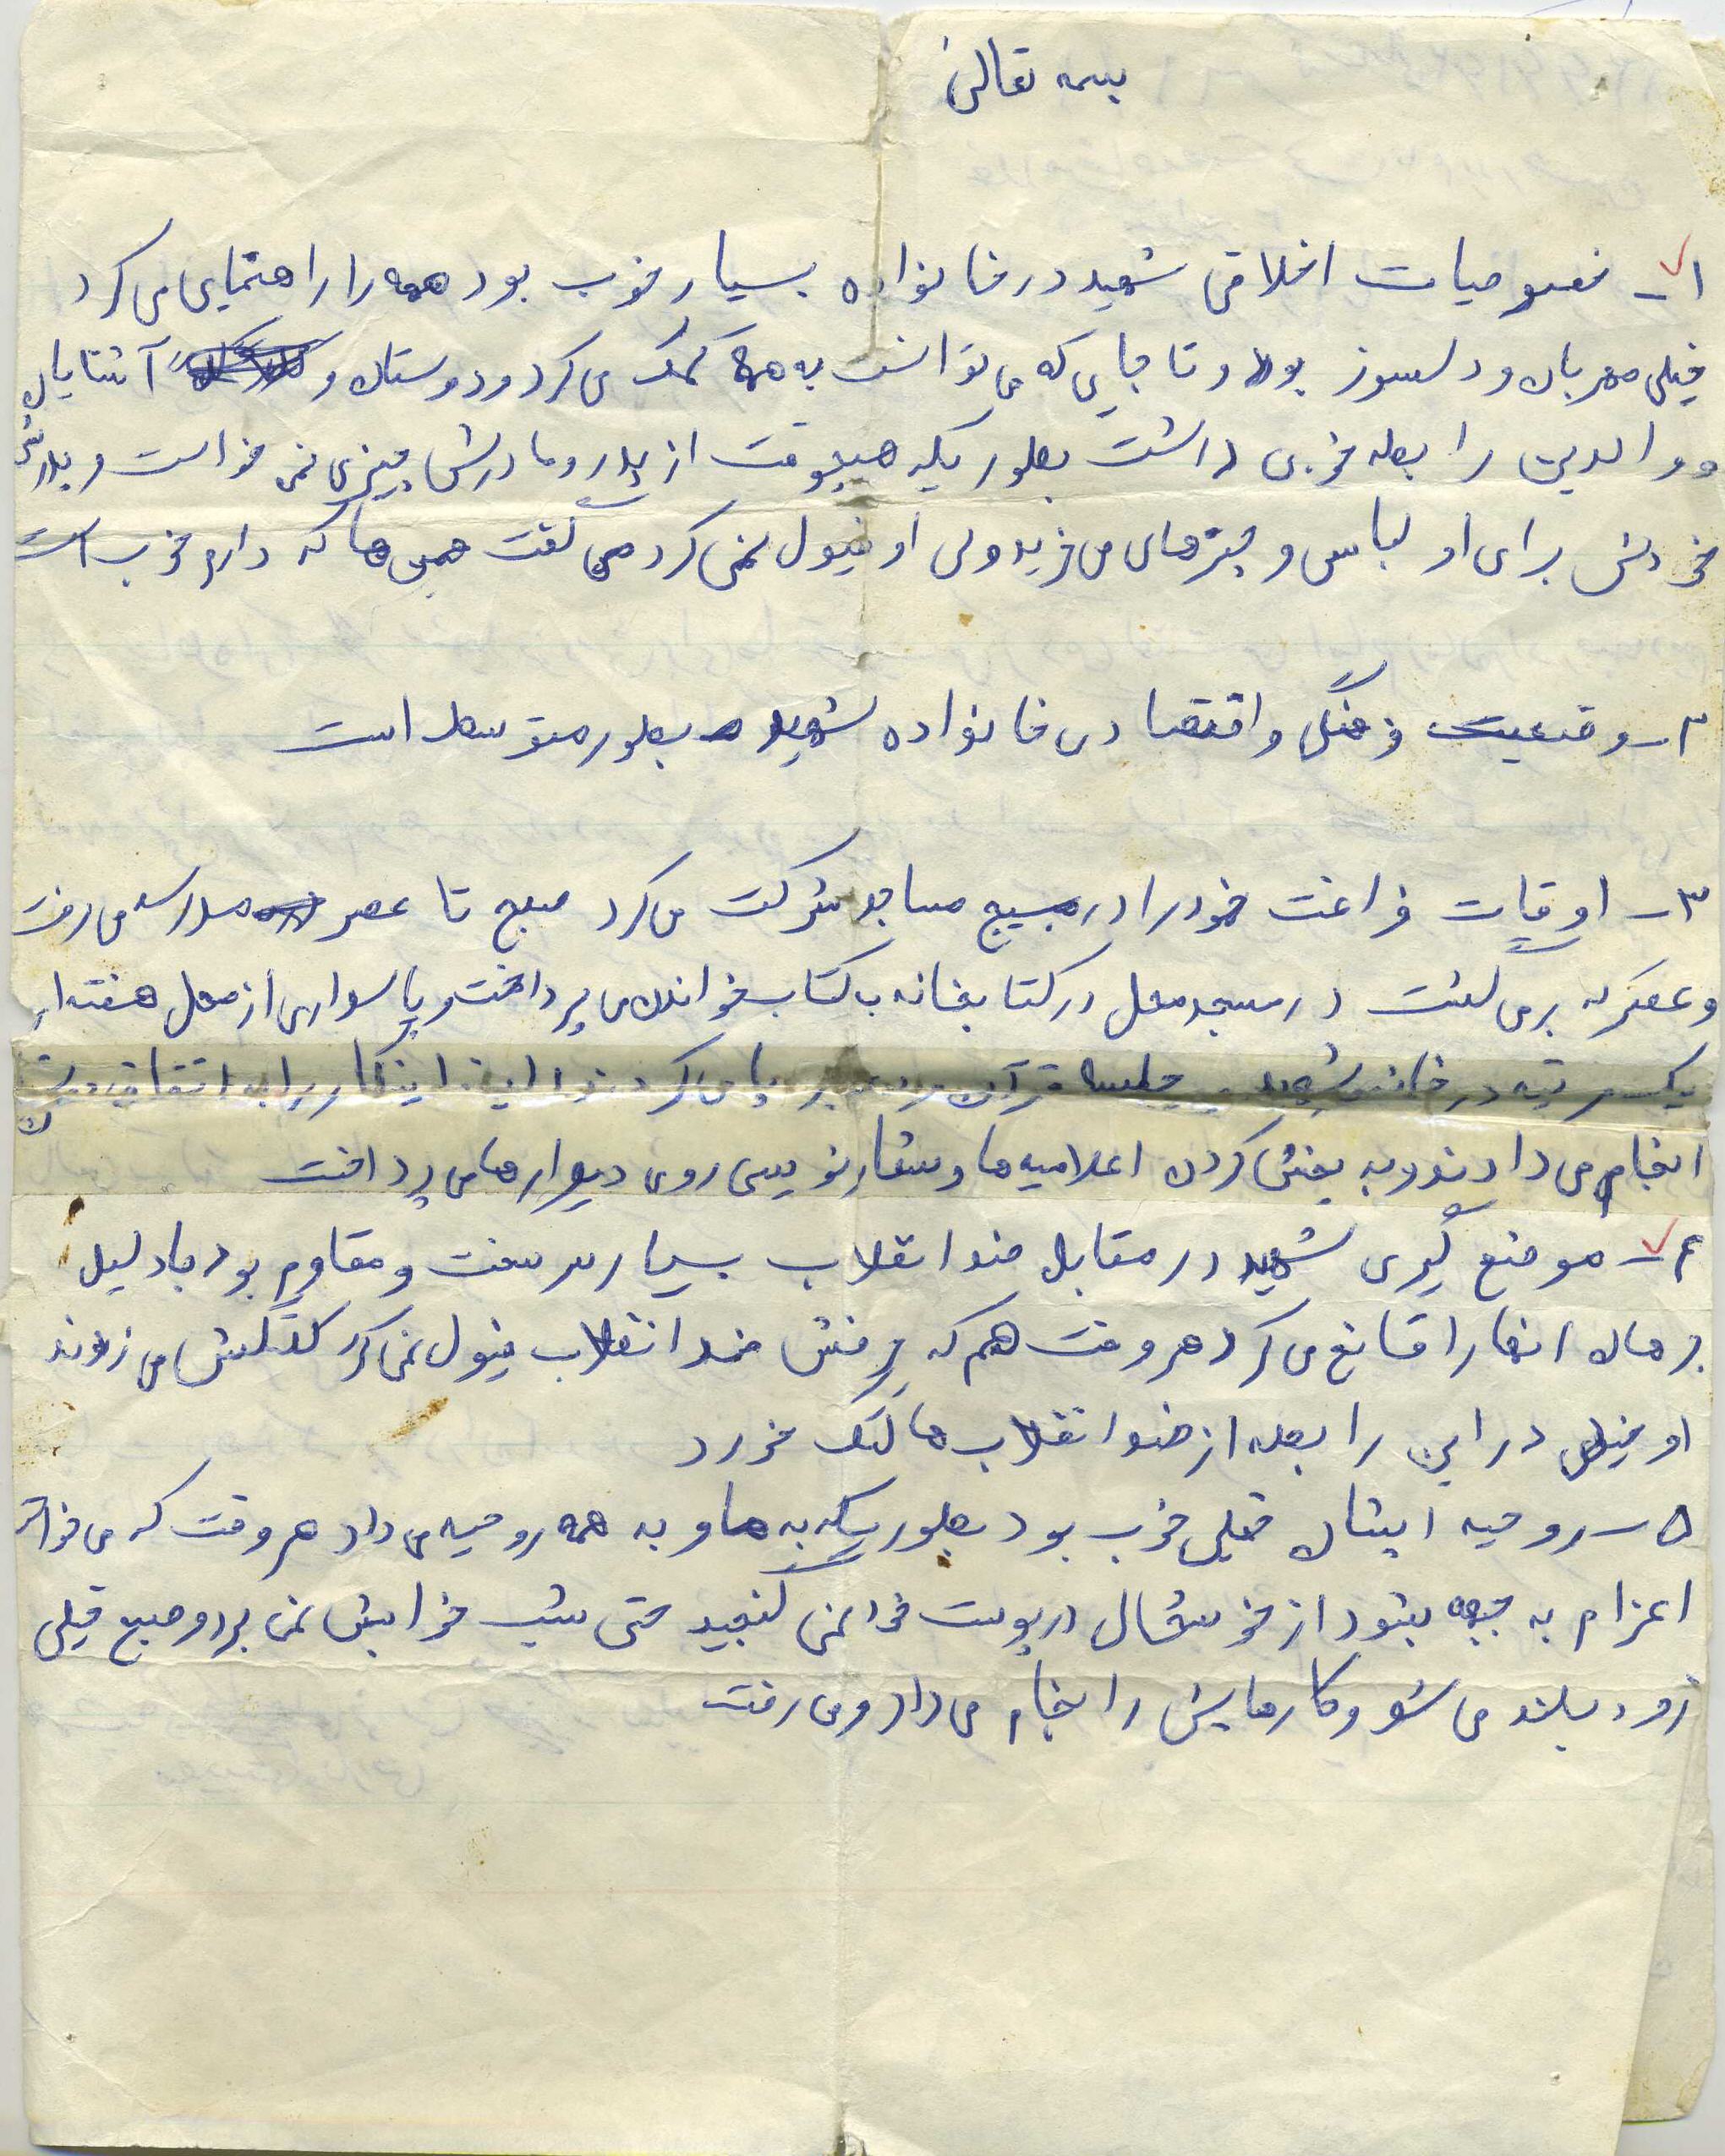 بسمه تعالی
۱- خصوصیات اخلاقی شهید در خانواده بسیار خوب بود همه را راهنمایی می کرد
خیلی مهربان و دلسوز بود و تا جایی که می توانست به همه کمک می کرد و دوستان و آشنایان
و والدین رابطه خوبی داشت بطوریکه هیچوقت از پدر و مادرش چیزی نمی خواست و پدرش
خودش برای او لباس و چیزهای می خرید ولی او قبول نمی کرد می گفت همین ها که دارم خوب است
۲- وقعیت فرهنگی و اقتصادی خانواده شهید بطور متوسط است
۳- اوقات فراغت خود را در بسیج مساجد شرکت می کرد صبح تا عصر مدرسه می رفت
و عصر که برمی گشت در مسجد محل در کتابخانه ب کتاب خواندن می پرداخت و پاسداری از محل هفته ای
یک مرتبه در خانه شهید جلسه قرآن برپا می کردند این کار را به اتفاق دوستان
انجام می دادند و به پخش کردن اعلامیه ها و شعار نویسی روی دیوارها می پرداخت
۴- موضع گیری شهید در مقابل ضد انقلاب بسیار سرسخت و مقاوم بود با دلیل
برهان آنها را قانع می کرد هر وقت هم که حرفش ضد انقلاب قبول نمی کرد کتکش می زدند
او خیلی در این رابطه از ضد انقلاب ها کتک خورد
۵- روحیه ایشان خیلی خوب بود بطوریکه به ما و به همه روحیه می داد هر وقت که می خواست
اعزام به جبهه بشود از خوشحال در پوست خود نمی گنجید حتی شب خوابش نمی برد و صبح خیلی
زود بلند می شد و کارهایش را انجام می داد و می رفت